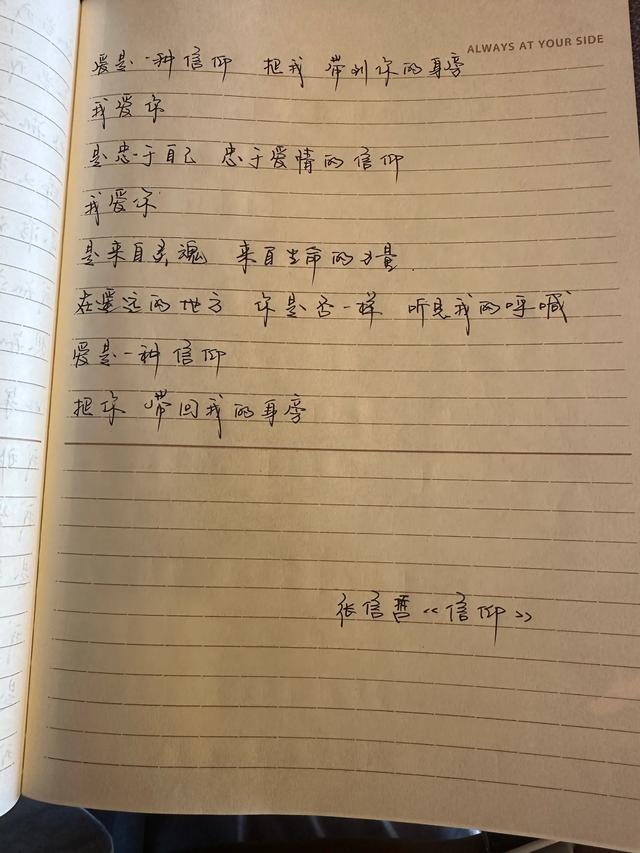 ALWAYS AT YOUR SIDE
爱是一种信仰 把我 带到你的身旁
我爱你
是忠于自己 忠于爱情的信仰
我爱你
是来自灵魂 来自生命的力量
在遥远的地方 你是否一样 听见我的呼喊
爱是一种信仰
把你 带回我的身旁
张信哲《信仰》